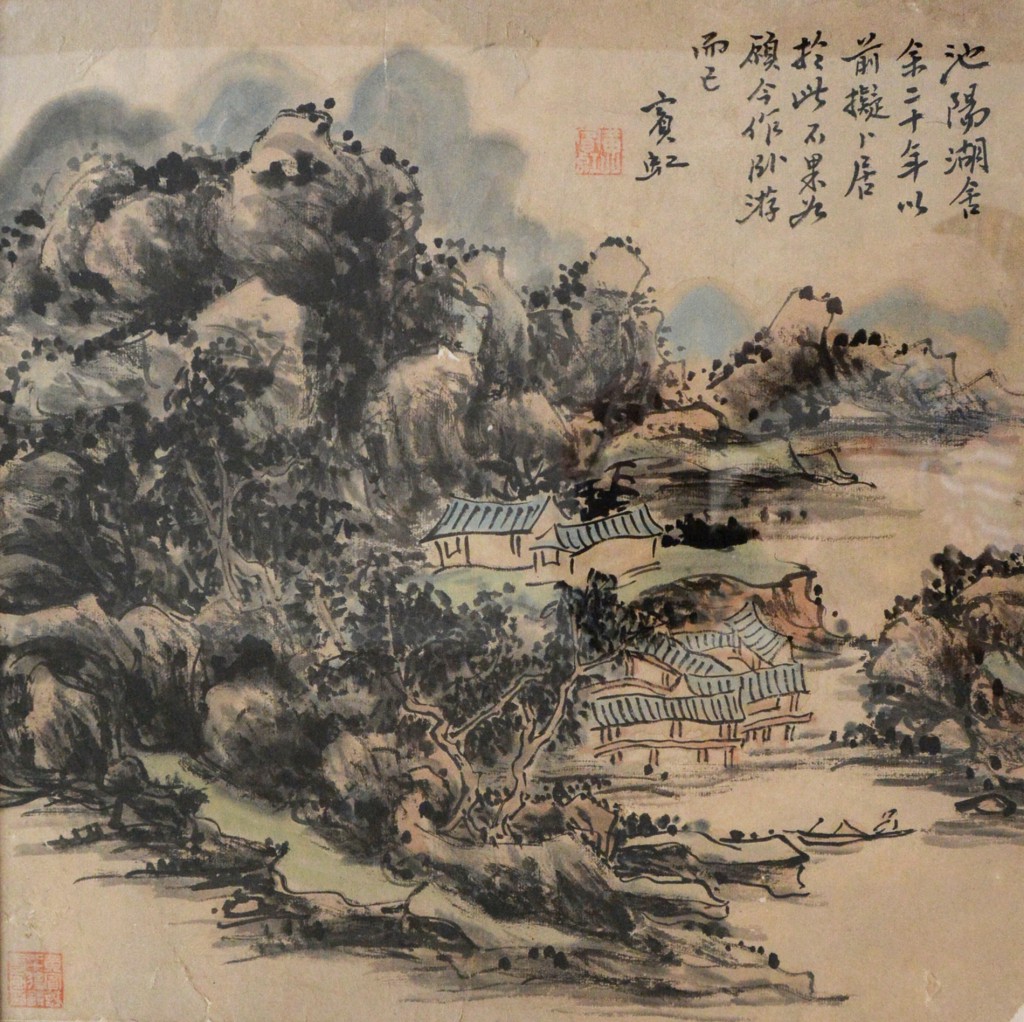 池陽湖舍
余二十年以
前擬卜居
於此不果如
願今作卧游
而已
賓虹